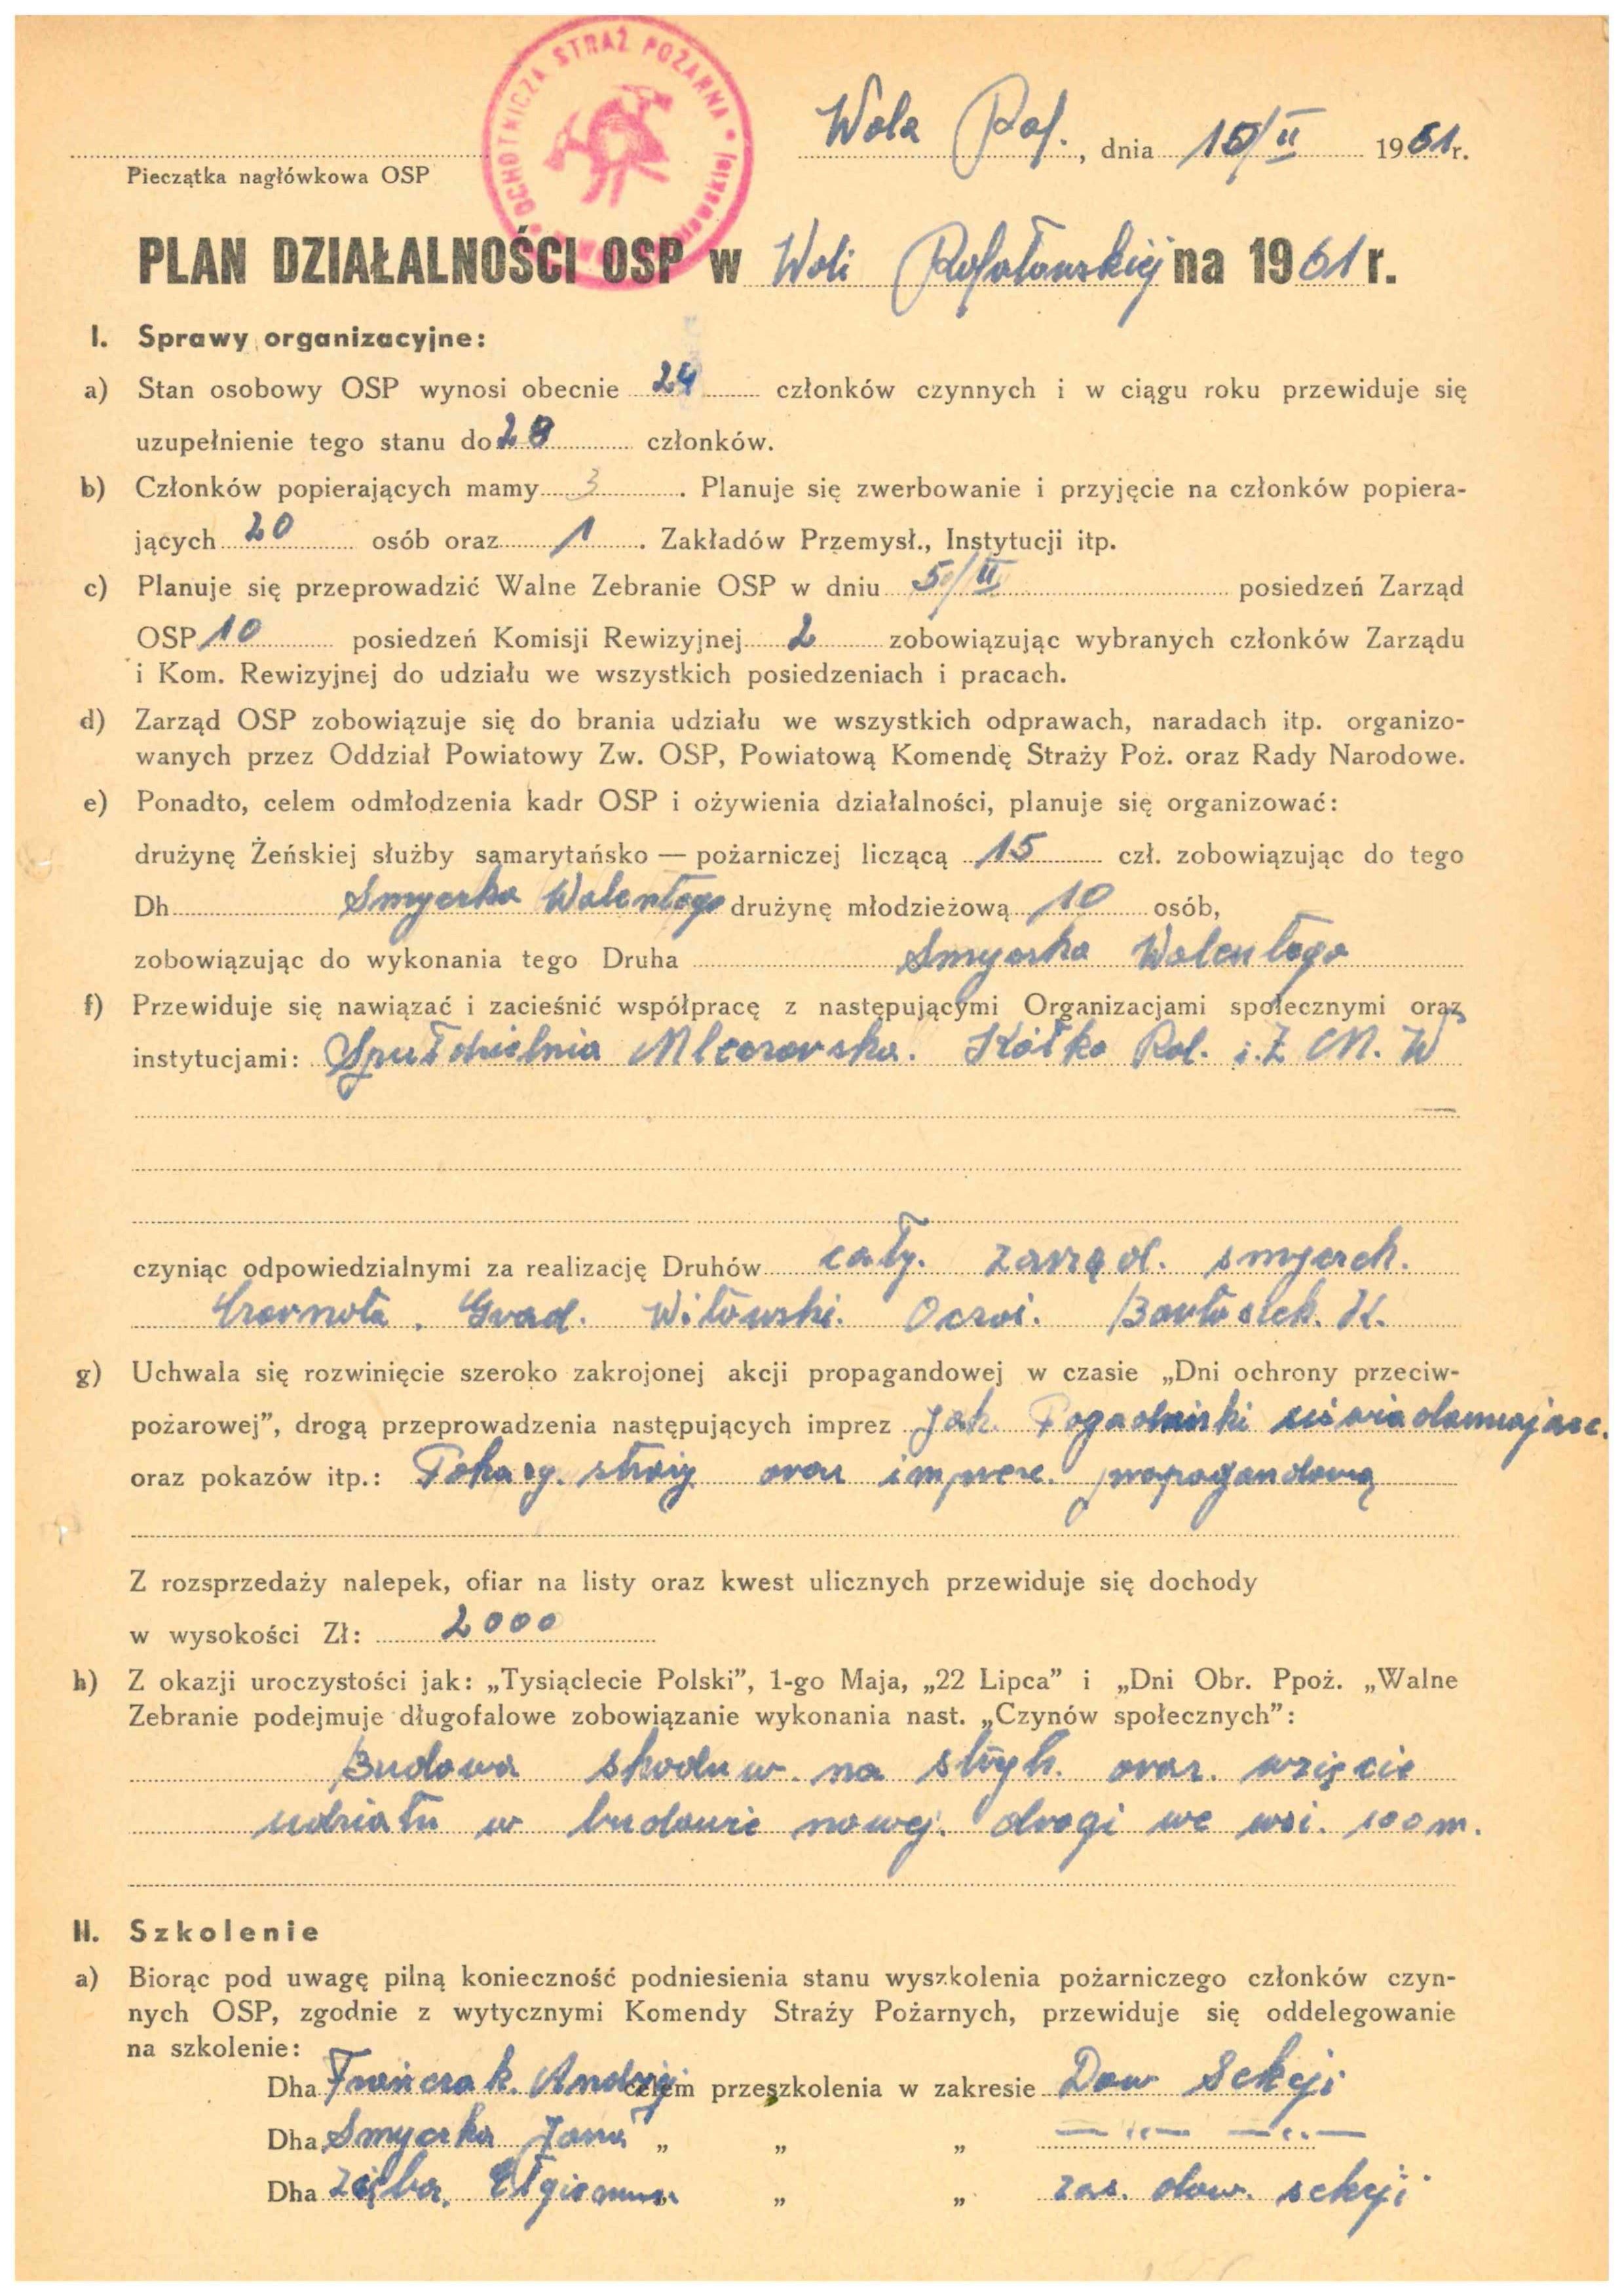 OCHOTNICZA STRAŻ POŻARNA
Wola Raf., dnia 15/II 1961 r.
Pieczątka nagłówkowa OSP
PLAN DZIAŁALNOŚCI OSP w Woli Rafałowskiej na 1961 r.
I. Sprawy organizacyjne:
a) Stan osobowy OSP wynosi obecnie 24 członków czynnych i w ciągu roku przewiduje się
uzupełnienie tego stanu do 28 członków.
b) Członków popierających mamy 3. Planuje się zwerbowanie i przyjęcie na członków popiera-
jących 20 osób oraz 1. Zakładów Przemysł., Instytucji itp.
c) Planuje się przeprowadzić Walne Zebranie OSP w dniu 5/II posiedzeń Zarząd
OSP 10 posiedzeń Komisji Rewizyjnej 2 zobowiązując wybranych członków Zarządu
i Kom. Rewizyjnej do udziału we wszystkich posiedzeniach i pracach.
d) Zarząd OSP zobowiązuje się do brania udziału we wszystkich odprawach, naradach itp. organizo-
wanych przez Oddział Powiatowy Zw. OSP, Powiatową Komendę Straży Poż. oraz Rady Narodowe.
e) Ponadto, celem odmłodzenia kadr OSP i ożywienia działalności, planuje się organizować:
drużynę Żeńskiej służby samarytańsko — pożarniczej liczącą 15 czł. zobowiązując do tego
Dh Smyczka Walentego drużynę młodzieżową 10 osób,
zobowiązując do wykonania tego Druha Smyczka Walentego
f) Przewiduje się nawiązać i zacieśnić współpracę z następującymi Organizacjami społecznymi oraz
instytucjami: Spułdzielnia Mleczarska. Kółko Rol. i. Z M. W
czyniąc odpowiedzialnymi za realizację Druhów cały. zarząd. smyczek.
Czarnota. Grad. Witowski. Bartosiek. K.
g) Uchwala się rozwinięcie szeroko zakrojonej akcji propagandowej w czasie „Dni ochrony przeciw-
pożarowej”, drogą przeprowadzenia następujących imprez Jak. Pogadanki uświadamiające.
oraz pokazów itp.: Pokazy. straży oraz imprezę. propagandową
Z rozsprzedaży nalepek, ofiar na listy oraz kwest ulicznych przewiduje się dochody
w wysokości Zł: 2000
h) Z okazji uroczystości jak: „Tysiąclecie Polski”, 1-go Maja, „22 Lipca” i „Dni Obr. Ppoż. „Walne
Zebranie podejmuje długofalowe zobowiązanie wykonania nast. „Czynów społecznych”:
Budowa shoduw. na stryh. oraz. wzięcie
udziału w budowie nowej. drogi we wsi. 100 m.
II. Szkolenie
a) Biorąc pod uwagę pilną konieczność podniesienia stanu wyszkolenia pożarniczego członków czyn-
nych OSP, zgodnie z wytycznymi Komendy Straży Pożarnych, przewiduje się oddelegowanie
na szkolenie:
Dha Frańczak. Andrzej celem przeszkolenia w zakresie Dow Sekcji
Dha Smyczka Jana „ „ „ — „ — — „ —
Dha Zięba. „ „ zas. dow. sekcji